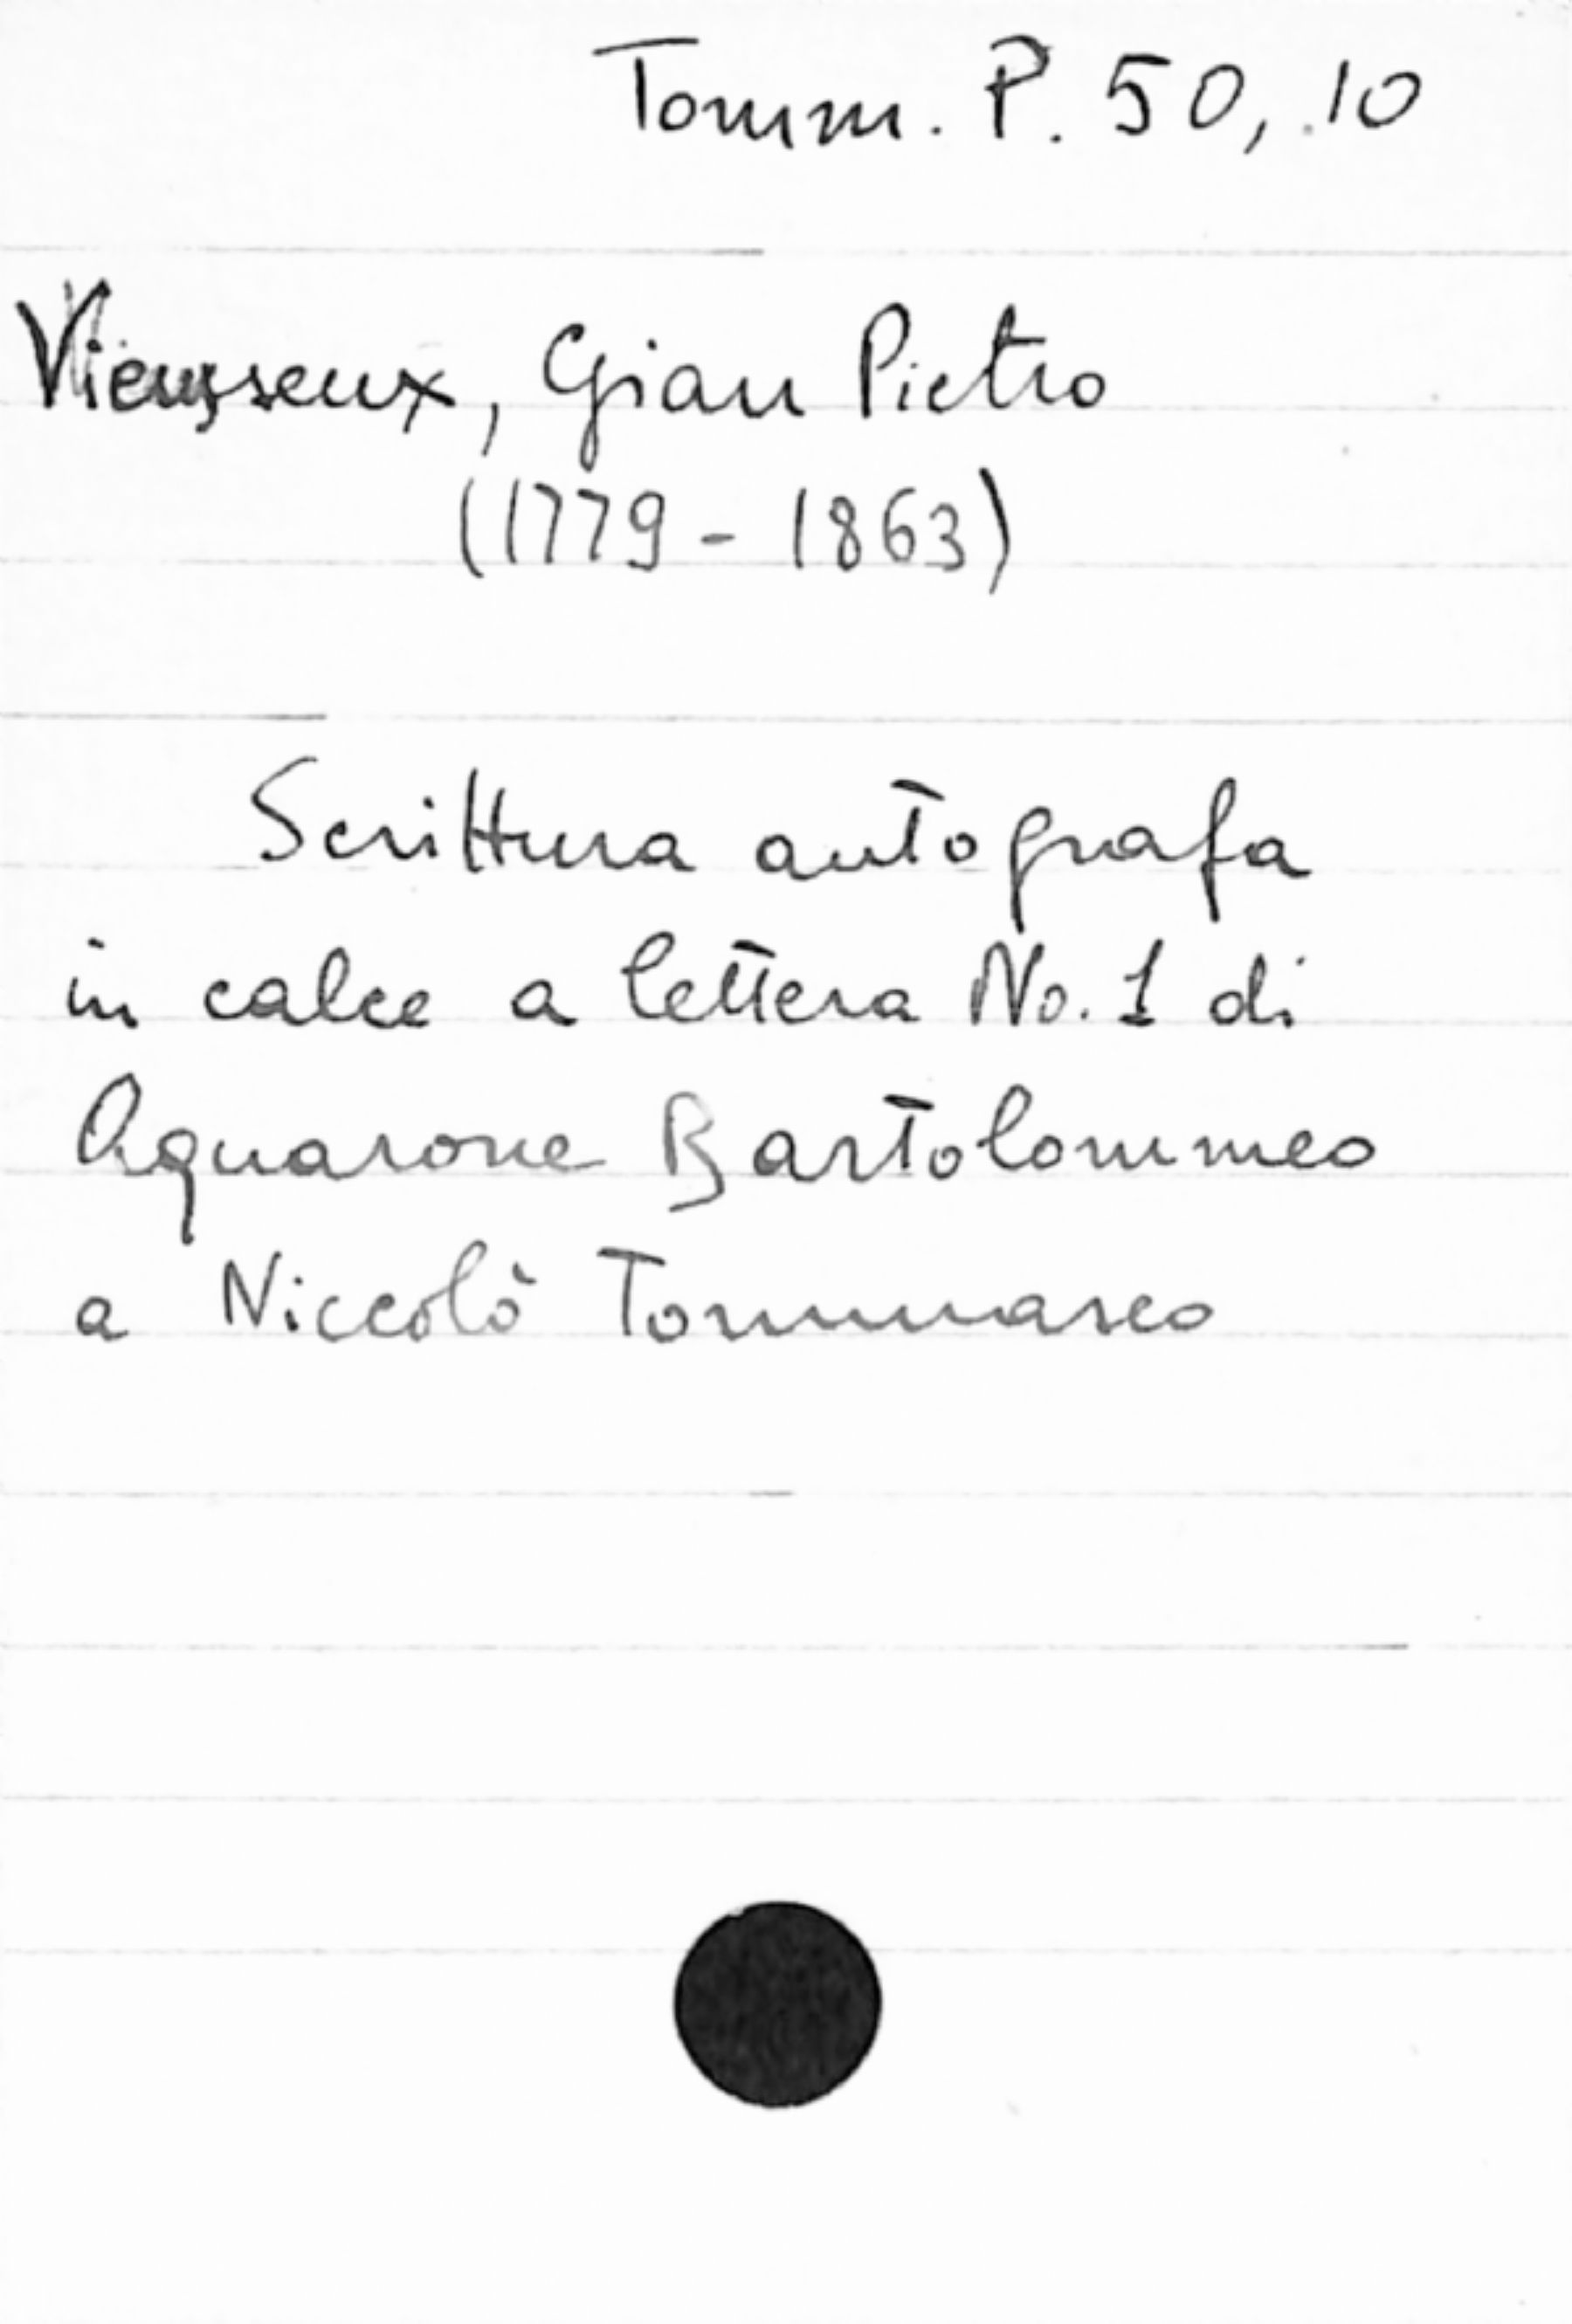 Tomm. P. 50, 10
Vieusseux, Gian Pietro
(1779 - 1863)
Scrittura autografa
in calce a lettera No. 1 di
Aquarone Bartolommeo
a Niccolò Tommaseo